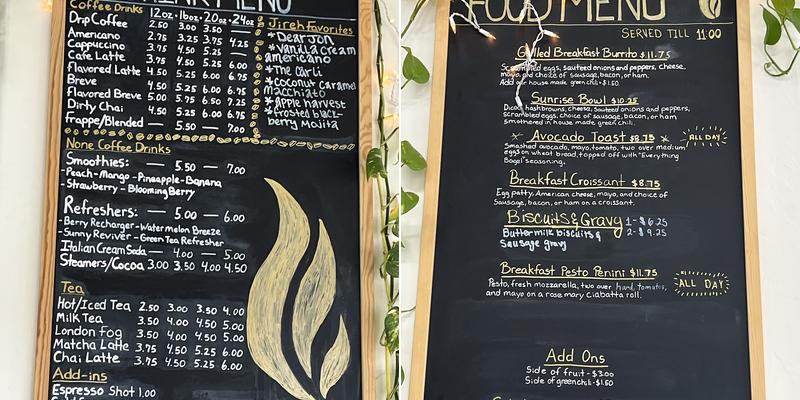 MENU
Coffee Drinks 12oz · 16oz · 20oz · 24oz
Drip Coffee 2.50 3.00 3.50 —
Americano 2.75 3.25 3.75 4.25
Cappuccino 3.75 4.50 5.25 —
Cafe Latte 3.75 4.50 5.25 6.00
Flavored Latte 4.50 5.25 6.00 6.75
Breve 4.50 5.25 6.00 6.75
Flavored Breve 5.00 5.75 6.50 7.25
Dirty Chai 4.50 5.25 6.00 6.75
Frappe/Blended — 5.50 — 7.00
Jireh Favorites
*Dear Jon
*Vanilla Cream
americano
*The Carli
*Coconut Caramel
Macchiato
*Apple harvest
*frosted black-
berry Mojita
None Coffee Drinks
Smoothies: — 5.50 — 7.00
-Peach-Mango-Pineapple-Banana
-Strawberry - Blooming Berry
Refreshers: — 5.00 — 6.00
-Berry Recharger-Watermelon Breeze
-Sunny Reviver - Green Tea Refresher
Italian Cream Soda — 4.00 — 5.00
Steamers/Cocoa 3.00 3.50 4.00 4.50
Tea
Hot/Iced Tea 2.50 3.00 3.50 4.00
Milk Tea 3.50 4.00 4.50 5.00
London Fog 3.50 4.00 4.50 5.00
Matcha Latte 3.75 4.50 5.25 6.00
Chai Latte 3.75 4.50 5.25 6.00
Add-ins
Espresso Shot 1.00
FOOD MENU
SERVED TILL 11:00
Grilled Breakfast Burrito $11.75
Scrambled eggs, sauteed onions and peppers, cheese,
mayo, and choice of sausage, bacon, or ham.
Add our house made green chili +$1.50
Sunrise Bowl $10.25
Diced hashbrowns, cheese, sauteed onions and peppers,
scrambled eggs, choice of sausage, bacon, or ham
smothered in house made green chili.
Avocado Toast $8.75 ALL DAY
Smashed avocado, mayo, tomato, two over medium
eggs on wheat bread, topped off with "Everything
Bagel" seasoning.
Breakfast Croissant $8.75
Egg patty, American cheese, mayo, and choice of
Sausage, bacon, or ham on a croissant.
Biscuits & Gravy 1-$6.25
Buttermilk biscuits & 2-$9.25
Sausage gravy
Breakfast Pesto Penini $11.75
Pesto, fresh mozzarella, two over hard, tomatos, ALL DAY
and mayo on a rosemary Ciabatta roll.
Add Ons
Side of fruit - $3.00
Side of green chili - $1.50